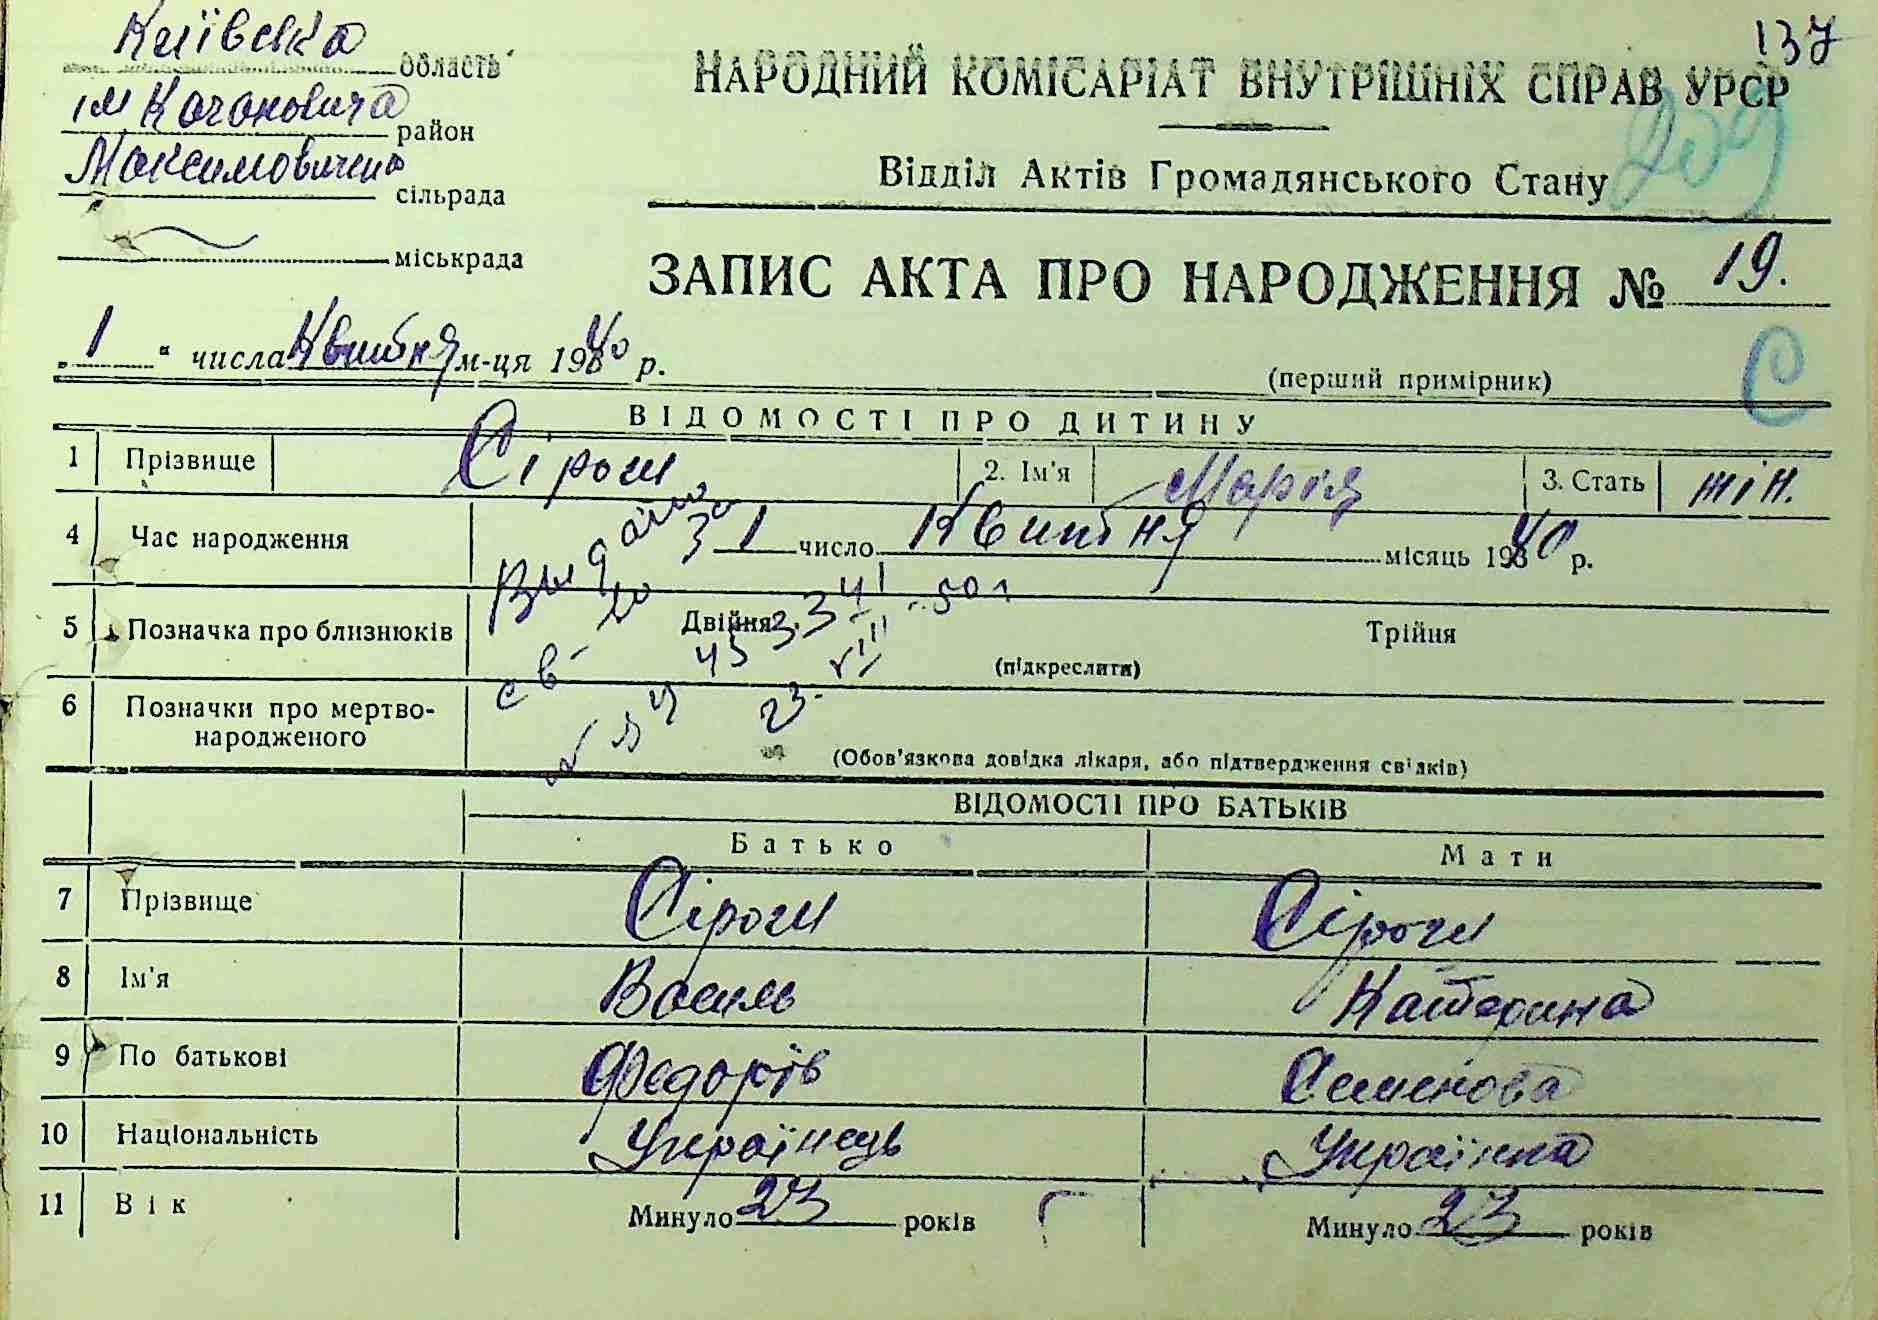 137
Київська область
ім Кагановича район
Максимовичська сільрада
міськрада
НАРОДНИЙ КОМІСАРІАТ ВНУТРІШНІХ СПРАВ УРСР
209
Відділ Актів Громадянського Стану
ЗАПИС АКТА ПРО НАРОДЖЕННЯ № 19.
„ 1 “ числа Квитня м-ця 1940 р.
(перший примірник)
С
ВІДОМОСТІ ПРО ДИТИНУ
1 Прізвище Сірош 2. Ім'я Марія 3. Стать жін.
4 Час народження 1 число Квитня місяць 1940 р.
5 Позначка про близнюків Двійня Трійня
(підкреслити)
6 Позначки про мертво-
народженого
(Обов'язкова довідка лікаря, або підтвердження свідків)
ВІДОМОСТІ ПРО БАТЬКІВ
Батько Мати
7 Прізвище Сірош Сірош
8 Ім'я Василь Катерина
9 По батькові Федорів Семенова
10 Національність Українець Українка
11 Вік Минуло 23 років Минуло 23 років